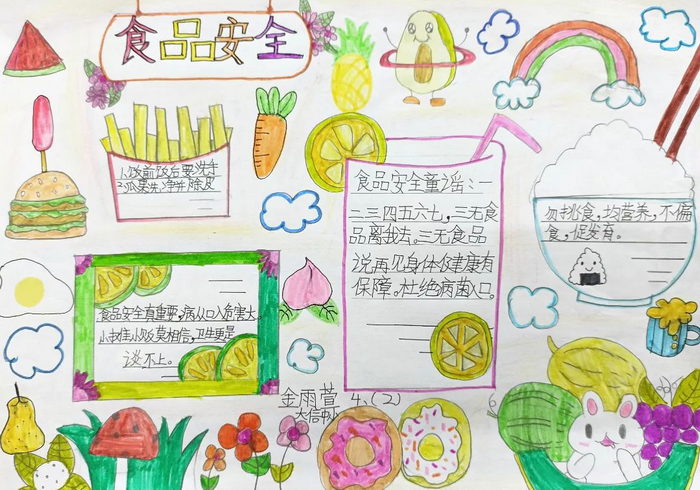 食品安全
1.饭前饭后要洗手
2.瓜果洗净并除皮
食品安全童谣：一
二三四五六七，三无食
品离我去。三无食品
说再见身体健康有
保障。杜绝病菌入口。
勿挑食，均营养，不偏
食，促发育。
食品安全真重要，病从口入危害大。
小摊小贩莫相信，卫生更是
谈不上。
金雨萱 4.（2）
大信中心